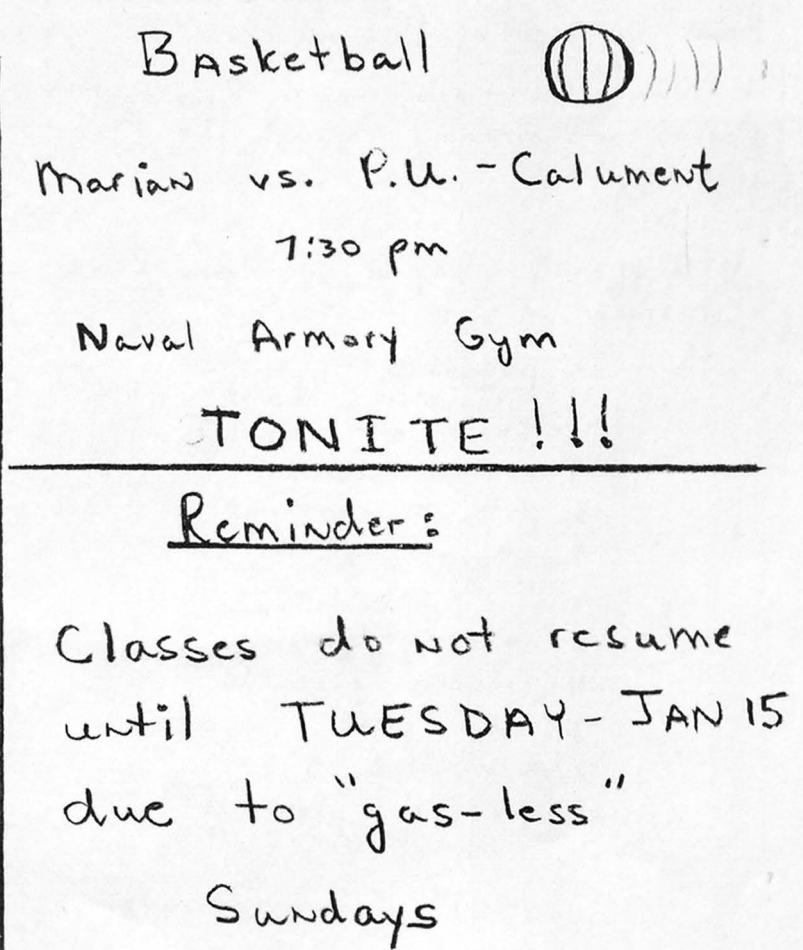 Basketball
Marian vs. P.U. - Calument
7:30 pm
Naval Armory Gym
TONITE !!!
Reminder:
Classes do not resume
until TUESDAY - JAN 15
due to "gas-less"
Sundays